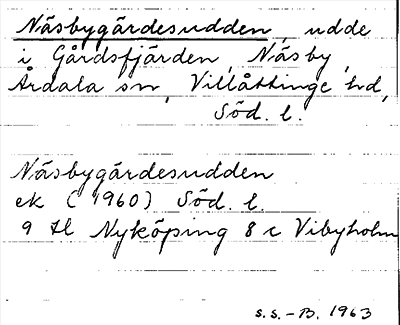 Näsbygärdesudden, udde
i Gårdsfjärden, Näsby,
Årdala sn, Villåttinge hd,
Söd. l.
Näsbygärdesudden
ek (1960) Söd. l.
9 H1 Nyköping 8 c Vibyholm
S.S.-B. 1963